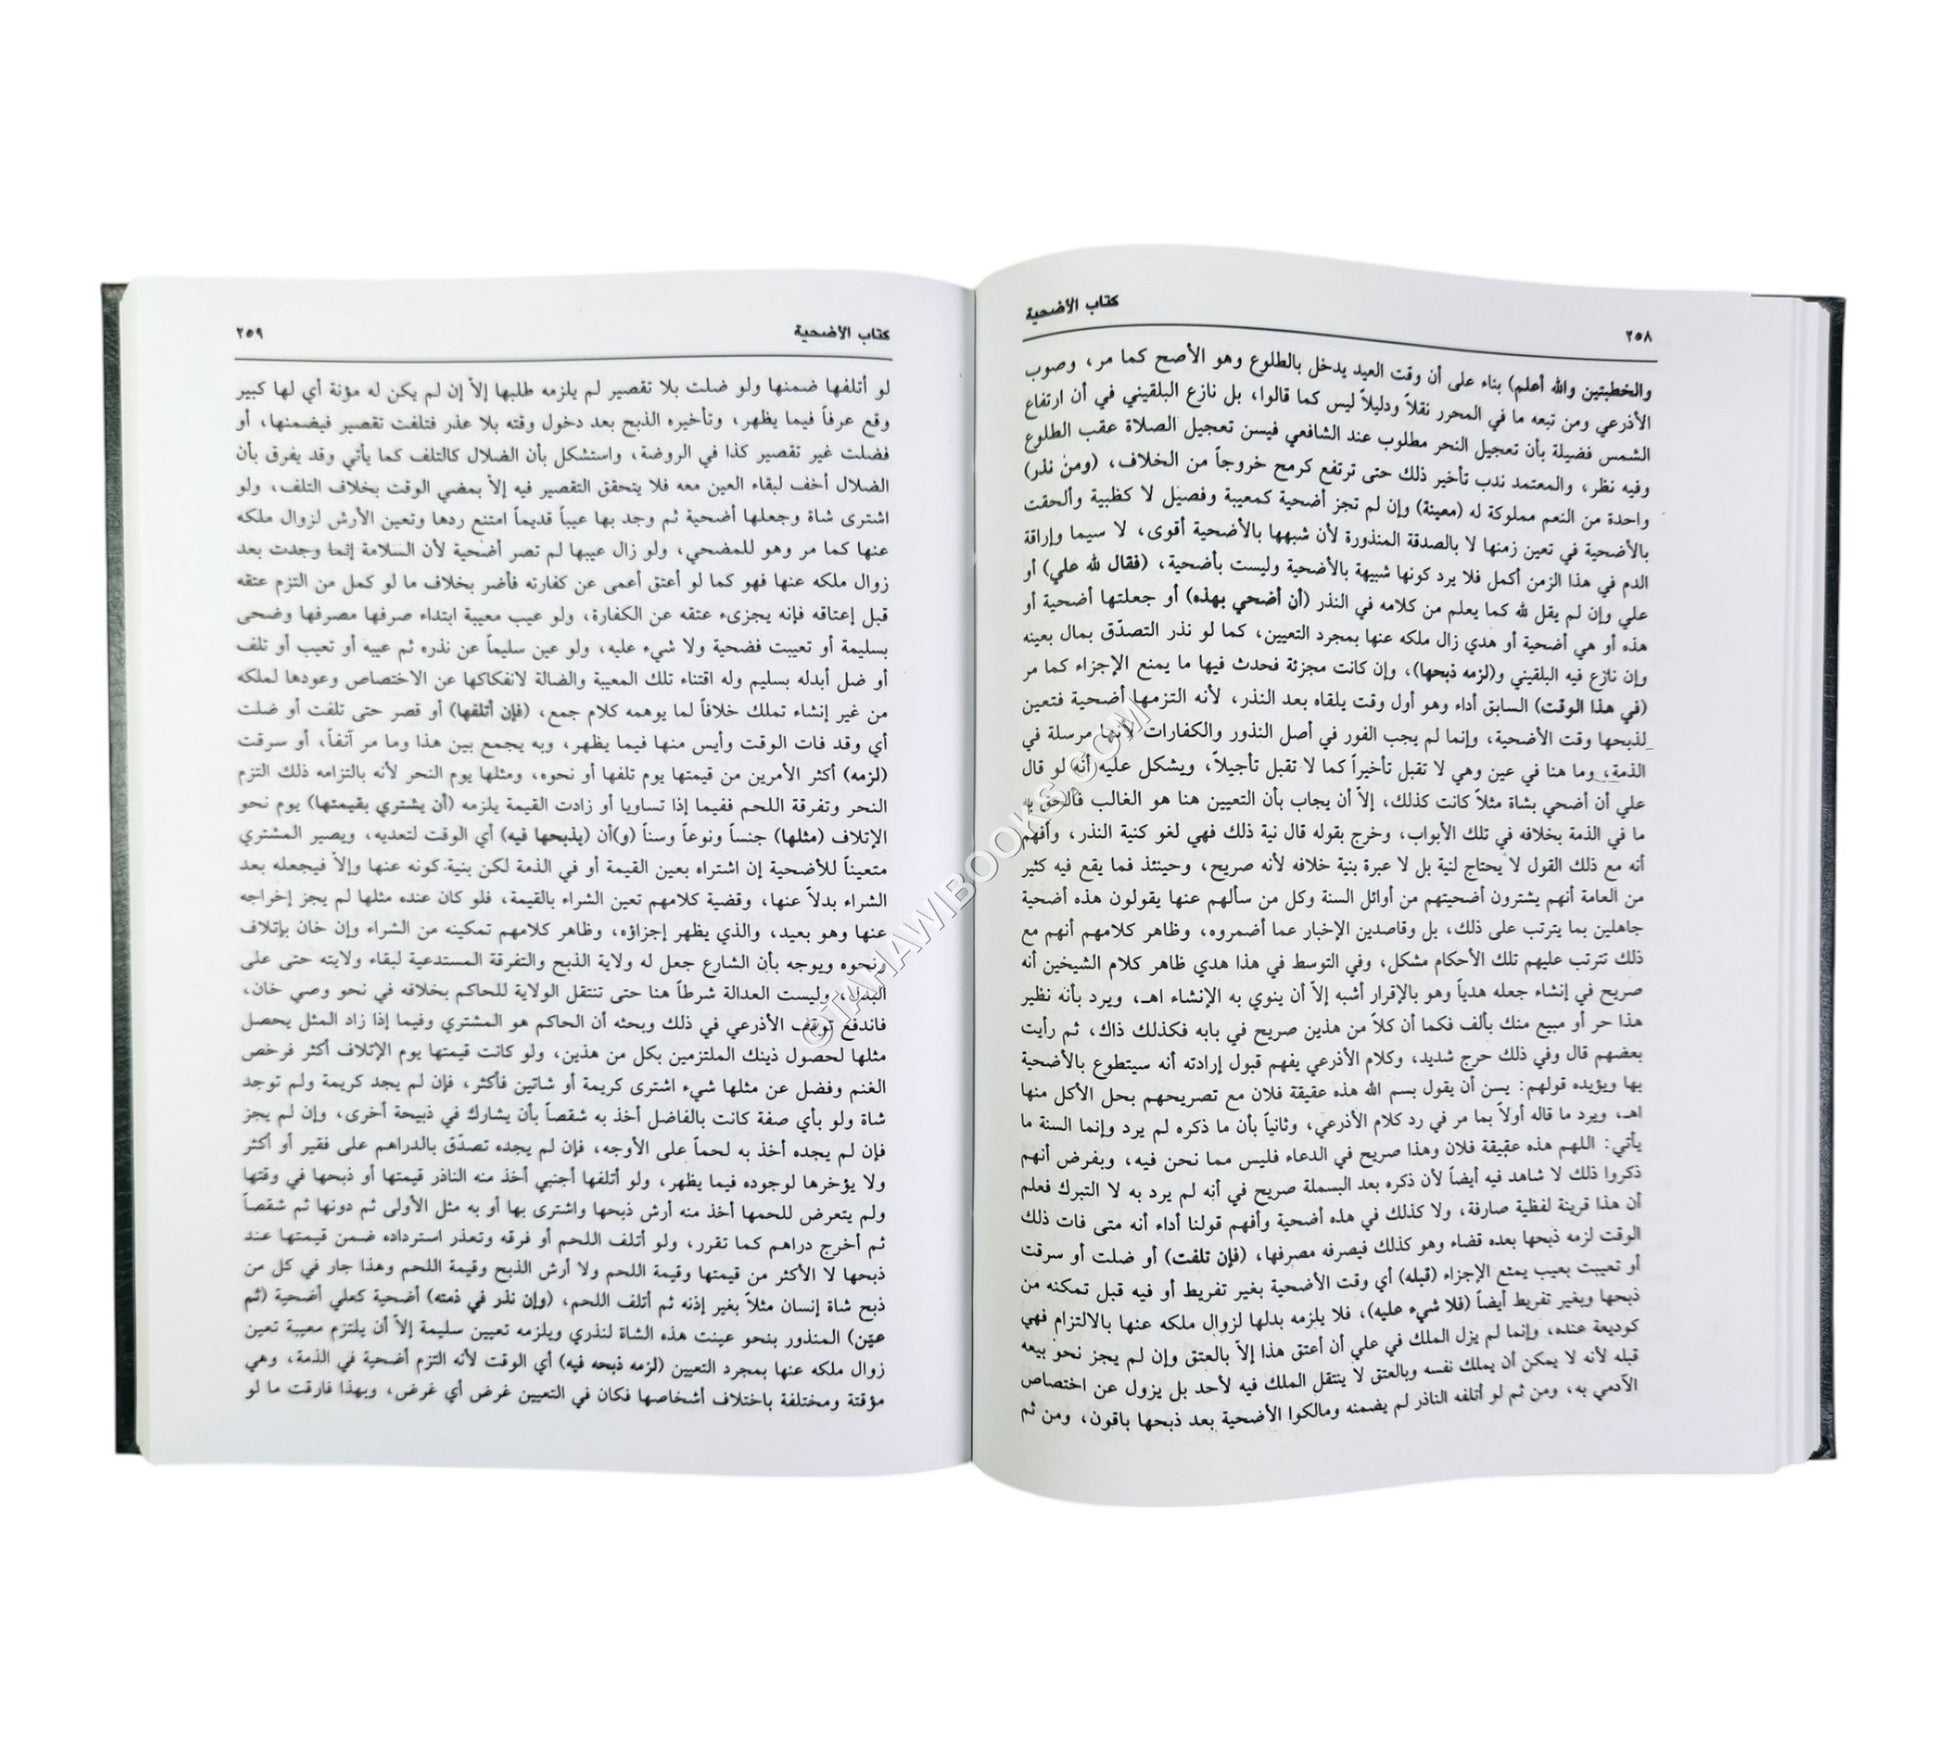 ٢٥٨
كتاب الأضحية
والخطبتين والله أعلم) بناء على أن وقت العيد يدخل بالطلوع وهو الأصح كما مر، وصوب
الأذرعي ومن تبعه ما في المحرر نقلاً ودليلاً ليس كما قالوا، بل نازع البلقيني في أن ارتفاع
الشمس فضيلة بأن تعجيل النحر مطلوب عند الشافعي فيسن تعجيل الصلاة عقب الطلوع
وفيه نظر، والمعتمد ندب تأخير ذلك حتى ترتفع كرمح خروجاً من الخلاف، (ومن نذر)
واحدة من النعم مملوكة له (معينة) وإن لم تجز أضحية كمعيبة وفصيل لا كظبية وألحقت
بالأضحية في تعين زمنها لا بالصدقة المنذورة لأن شبهها بالأضحية أقوى، لا سيما وإراقة
الدم في هذا الزمن أكمل فلا يرد كونها شبيهة بالأضحية وليست بأضحية، (فقال لله علي) أو
علي وإن لم يقل لله كما يعلم من كلامه في النذر (أن أضحي بهذه) أو جعلتها أضحية أو
هذه أو هي أضحية أو هدي زال ملكه عنها بمجرد التعيين، كما لو نذر التصدّق بمال بعينه
وإن نازع فيه البلقيني و(لزمه ذبحها)، وإن كانت مجزئة فحدث فيها ما يمنع الإجزاء كما مر
(في هذا الوقت) السابق أداء وهو أول وقت يلقاه بعد النذر، لأنه التزمها أضحية فتعين
لذبحها وقت الأضحية، وإنما لم يجب الفور في أصل النذور والكفارات لأنها مرسلة في
الذمة، وما هنا في عين وهي لا تقبل تأخيراً كما لا تقبل تأجيلاً، ويشكل عليه أنه لو قال
علي أن أضحي بشاة مثلاً كانت كذلك، إلاّ أن يجاب بأن التعيين هنا هو الغالب فألحق به
ما في الذمة بخلافه في تلك الأبواب، وخرج بقوله قال نية ذلك فهي لغو كنية النذر، وأفهم
أنه مع ذلك القول لا يحتاج لنية بل لا عبرة بنية خلافه لأنه صريح، وحينئذ فما يقع فيه كثير
من العامة أنهم يشترون أضحيتهم من أوائل السنة وكل من سألهم عنها يقولون هذه أضحية
جاهلين بما يترتب على ذلك، بل وقاصدين الإخبار عما أضمروه، وظاهر كلامهم أنهم مع
ذلك تترتب عليهم تلك الأحكام مشكل، وفي التوسط في هذا هدي ظاهر كلام الشيخين أنه
صريح في إنشاء جعله هدياً وهو بالإقرار أشبه إلاّ أن ينوي به الإنشاء اهـ، ويرد بأنه نظير
هذا حر أو مبيع منك بألف فكما أن كلاً من هذين صريح في بابه فكذلك ذاك، ثم رأيت
بعضهم قال وفي ذلك حرج شديد، وكلام الأذرعي يفهم قبول إرادته أنه سيتطوع بالأضحية
بها ويؤيده قولهم: يسن أن يقول بسم الله هذه عقيقة فلان مع تصريحهم بحل الأكل منها
اهـ، ويرد ما قاله أولاً بما مر في رد كلام الأذرعي، وثانياً بأن ما ذكره لم يرد وإنما السنة ما
يأتي: اللهم هذه عقيقة فلان وهذا صريح في الدعاء فليس مما نحن فيه، وبفرض أنهم
ذكروا ذلك لا شاهد فيه أيضاً لأن ذكره بعد البسملة صريح في أنه لم يرد به لا التبرك فعلم
أن هذا قرينة لفظية صارفة، ولا كذلك في هذه أضحية وأفهم قولنا أداء أنه متى فات ذلك
الوقت لزمه ذبحها بعده قضاء وهو كذلك فيصرفه مصرفها، (فإن تلفت) أو ضلت أو سرقت
أو تعيبت بعيب يمنع الإجزاء (قبله) أي وقت الأضحية بغير تفريط أو فيه قبل تمكنه من
ذبحها وبغير تفريط أيضاً (فلا شيء عليه)، فلا يلزمه بدلها لزوال ملكه عنها بالالتزام فهي
كوديعة عنده، وإنما لم يزل الملك في علي أن أعتق هذا إلاّ بالعتق وإن لم يجز نحو بيعه
قبله لأنه لا يمكن أن يملك نفسه وبالعتق لا ينتقل الملك فيه لأحد بل يزول عن اختصاص
الآدمي به، ومن ثم لو أتلفه الناذر لم يضمنه ومالكوا الأضحية بعد ذبحها باقون، ومن ثم
كتاب الأضحية
٢٥٩
لو أتلفها ضمنها ولو ضلت بلا تقصير لم يلزمه طلبها إلاّ إن لم يكن له مؤنة أي لها كبير
وقع عرفاً فيما يظهر، وتأخيره الذبح بعد دخول وقته بلا عذر فتلفت تقصير فيضمنها، أو
فضلت غير تقصير كذا في الروضة، واستشكل بأن الضلال كالتلف كما يأتي وقد يفرق بأن
الضلال أخف لبقاء العين معه فلا يتحقق التقصير فيه إلاّ بمضي الوقت بخلاف التلف، ولو
اشترى شاة وجعلها أضحية ثم وجد بها عيباً قديماً امتنع ردها وتعين الأرش لزوال ملكه
عنها كما مر وهو للمضحي، ولو زال عيبها لم تصر أضحية لأن السلامة إنما وجدت بعد
زوال ملكه عنها فهو كما لو أعتق أعمى عن كفارته فأضر بخلاف ما لو كمل من التزم عتقه
قبل إعتاقه فإنه يجزىء عتقه عن الكفارة، ولو عيب معيبة ابتداء صرفها مصرفها وضحى
بسليمة أو تعيبت فضحية ولا شيء عليه، ولو عين سليماً عن نذره ثم عيبه أو تعيب أو تلف
أو ضل أبدله بسليم وله اقتناء تلك المعيبة والضالة لانفكاكها عن الاختصاص وعودها لملكه
من غير إنشاء تملك خلافاً لما يوهمه كلام جمع، (فإن أتلفها) أو قصر حتى تلفت أو ضلت
أي وقد فات الوقت وأيس منها فيما يظهر، وبه يجمع بين هذا وما مر آنفاً، أو سرقت
(لزمه) أكثر الأمرين من قيمتها يوم تلفها أو نحوه، ومثلها يوم النحر لأنه بالتزامه ذلك التزم
النحر وتفرقة اللحم ففيما إذا تساويا أو زادت القيمة يلزمه (أن يشتري بقيمتها) يوم نحو
الإتلاف (مثلها) جنساً ونوعاً وسناً (و)أن (يذبحها فيه) أي الوقت لتعديه، ويصير المشتري
متعيناً للأضحية إن اشتراه بعين القيمة أو في الذمة لكن بنية كونه عنها وإلاّ فيجعله بعد
الشراء بدلاً عنها، وقضية كلامهم تعين الشراء بالقيمة، فلو كان عنده مثلها لم يجز إخراجه
عنها وهو بعيد، والذي يظهر إجزاؤه، وظاهر كلامهم تمكينه من الشراء وإن خان بإتلاف
ونحوه ويوجه بأن الشارع جعل له ولاية الذبح والتفرقة المستدعية لبقاء ولايته حتى على
البدل، وليست العدالة شرطاً هنا حتى تنتقل الولاية للحاكم بخلافه في نحو وصي خان،
فاندفع توقف الأذرعي في ذلك وبحثه أن الحاكم هو المشتري وفيما إذا زاد المثل يحصل
مثلها لحصول ذينك الملتزمين بكل من هذين، ولو كانت قيمتها يوم الإتلاف أكثر فرخص
الغنم وفضل عن مثلها شيء اشترى كريمة أو شاتين فأكثر، فإن لم يجد كريمة ولم توجد
شاة ولو بأي صفة كانت بالفاضل أخذ به شقصاً بأن يشارك في ذبيحة أخرى، وإن لم يجز
فإن لم يجده أخذ به لحماً على الأوجه، فإن لم يجده تصدّق بالدراهم على فقير أو أكثر
ولا يؤخرها لوجوده فيما يظهر، ولو أتلفها أجنبي أخذ منه الناذر قيمتها أو ذبحها في وقتها
ولم يتعرض للحمها أخذ منه أرش ذبحها واشترى بها أو به مثل الأولى ثم دونها ثم شقصاً
ثم أخرج دراهم كما تقرر، ولو أتلف اللحم أو فرقه وتعذر استرداده ضمن قيمتها عند
ذبحها لا الأكثر من قيمتها وقيمة اللحم ولا أرش الذبح وقيمة اللحم وهذا جار في كل من
ذبح شاة إنسان مثلاً بغير إذنه ثم أتلف اللحم، (وإن نذر في ذمته) أضحية كعلي أضحية (ثم
عيّن) المنذور بنحو عينت هذه الشاة لنذري ويلزمه تعيين سليمة إلاّ أن يلتزم معيبة تعين
زوال ملكه عنها بمجرد التعيين (لزمه ذبحه فيه) أي الوقت لأنه التزم أضحية في الذمة، وهي
مؤقتة ومختلفة باختلاف أشخاصها فكان في التعيين غرض أي غرض، وبهذا فارقت ما لو
©TAHAWIBOOKS.COM